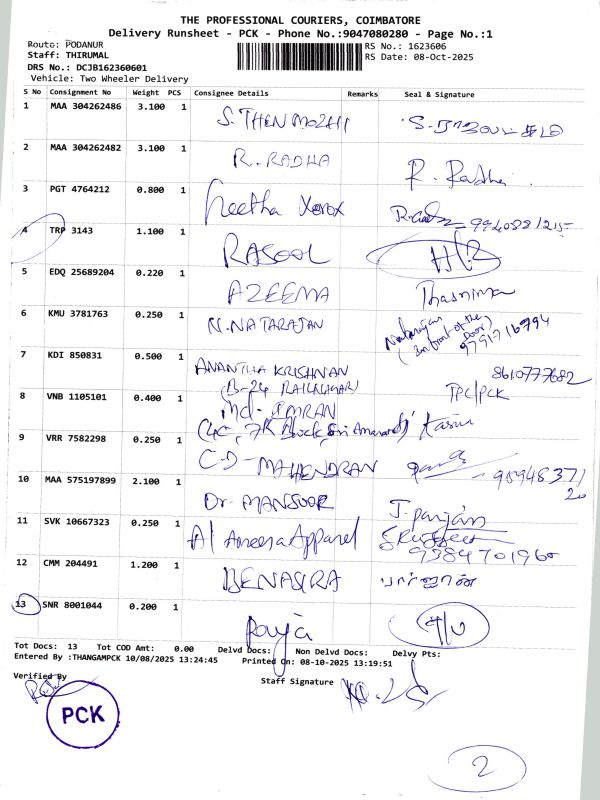 THE PROFESSIONAL COURIERS, COIMBATORE
Delivery Runsheet - PCK - Phone No.:9047080280 - Page No.:1
Route: PODANUR
RS No.: 1623606
Staff: THIRUMAL
RS Date: 08-Oct-2025
DRS No.: DCJB162360601
Vehicle: Two Wheeler Delivery
S No Consignment No Weight PCS Consignee Details Remarks Seal & Signature
1 MAA 304262486 3.100 1 S. THEN MOZHI
2 MAA 304262482 3.100 1 R. RADHA R. Radha
3 PGT 4764212 0.800 1 Geetha Xerox
4 TRP 3143 1.100 1 RASOOL
5 EDQ 25689204 0.220 1 AZEEMA Thasnima
6 KMU 3781763 0.250 1 N. NATARAJAN Natarajan
(Infront of the Door)
9791716794
7 KDI 850831 0.500 1 ANANTHA KRISHNAN
(B-24 RAILWAY) 8610777682
TPC/PCK
8 VNB 1105101 0.400 1 Md. IMRAN
9 VRR 7582298 0.250 1 C.D- MAHENDRAN
10 MAA 575197899 2.100 1 Dr. MANSOOR
11 SVK 10667323 0.250 1 Al Ameera Apparel 9384701960
12 CMM 204491 1.200 1 BENASIRA
13 SNR 8001044 0.200 1
Tot Docs: 13 Tot COD Amt: 0.00 Delvd Docs: Non Delvd Docs: Delvy Pts:
Entered By :THANGAMPCK 10/08/2025 13:24:45 Printed On: 08-10-2025 13:19:51
Verified By
Staff Signature
PCK
2